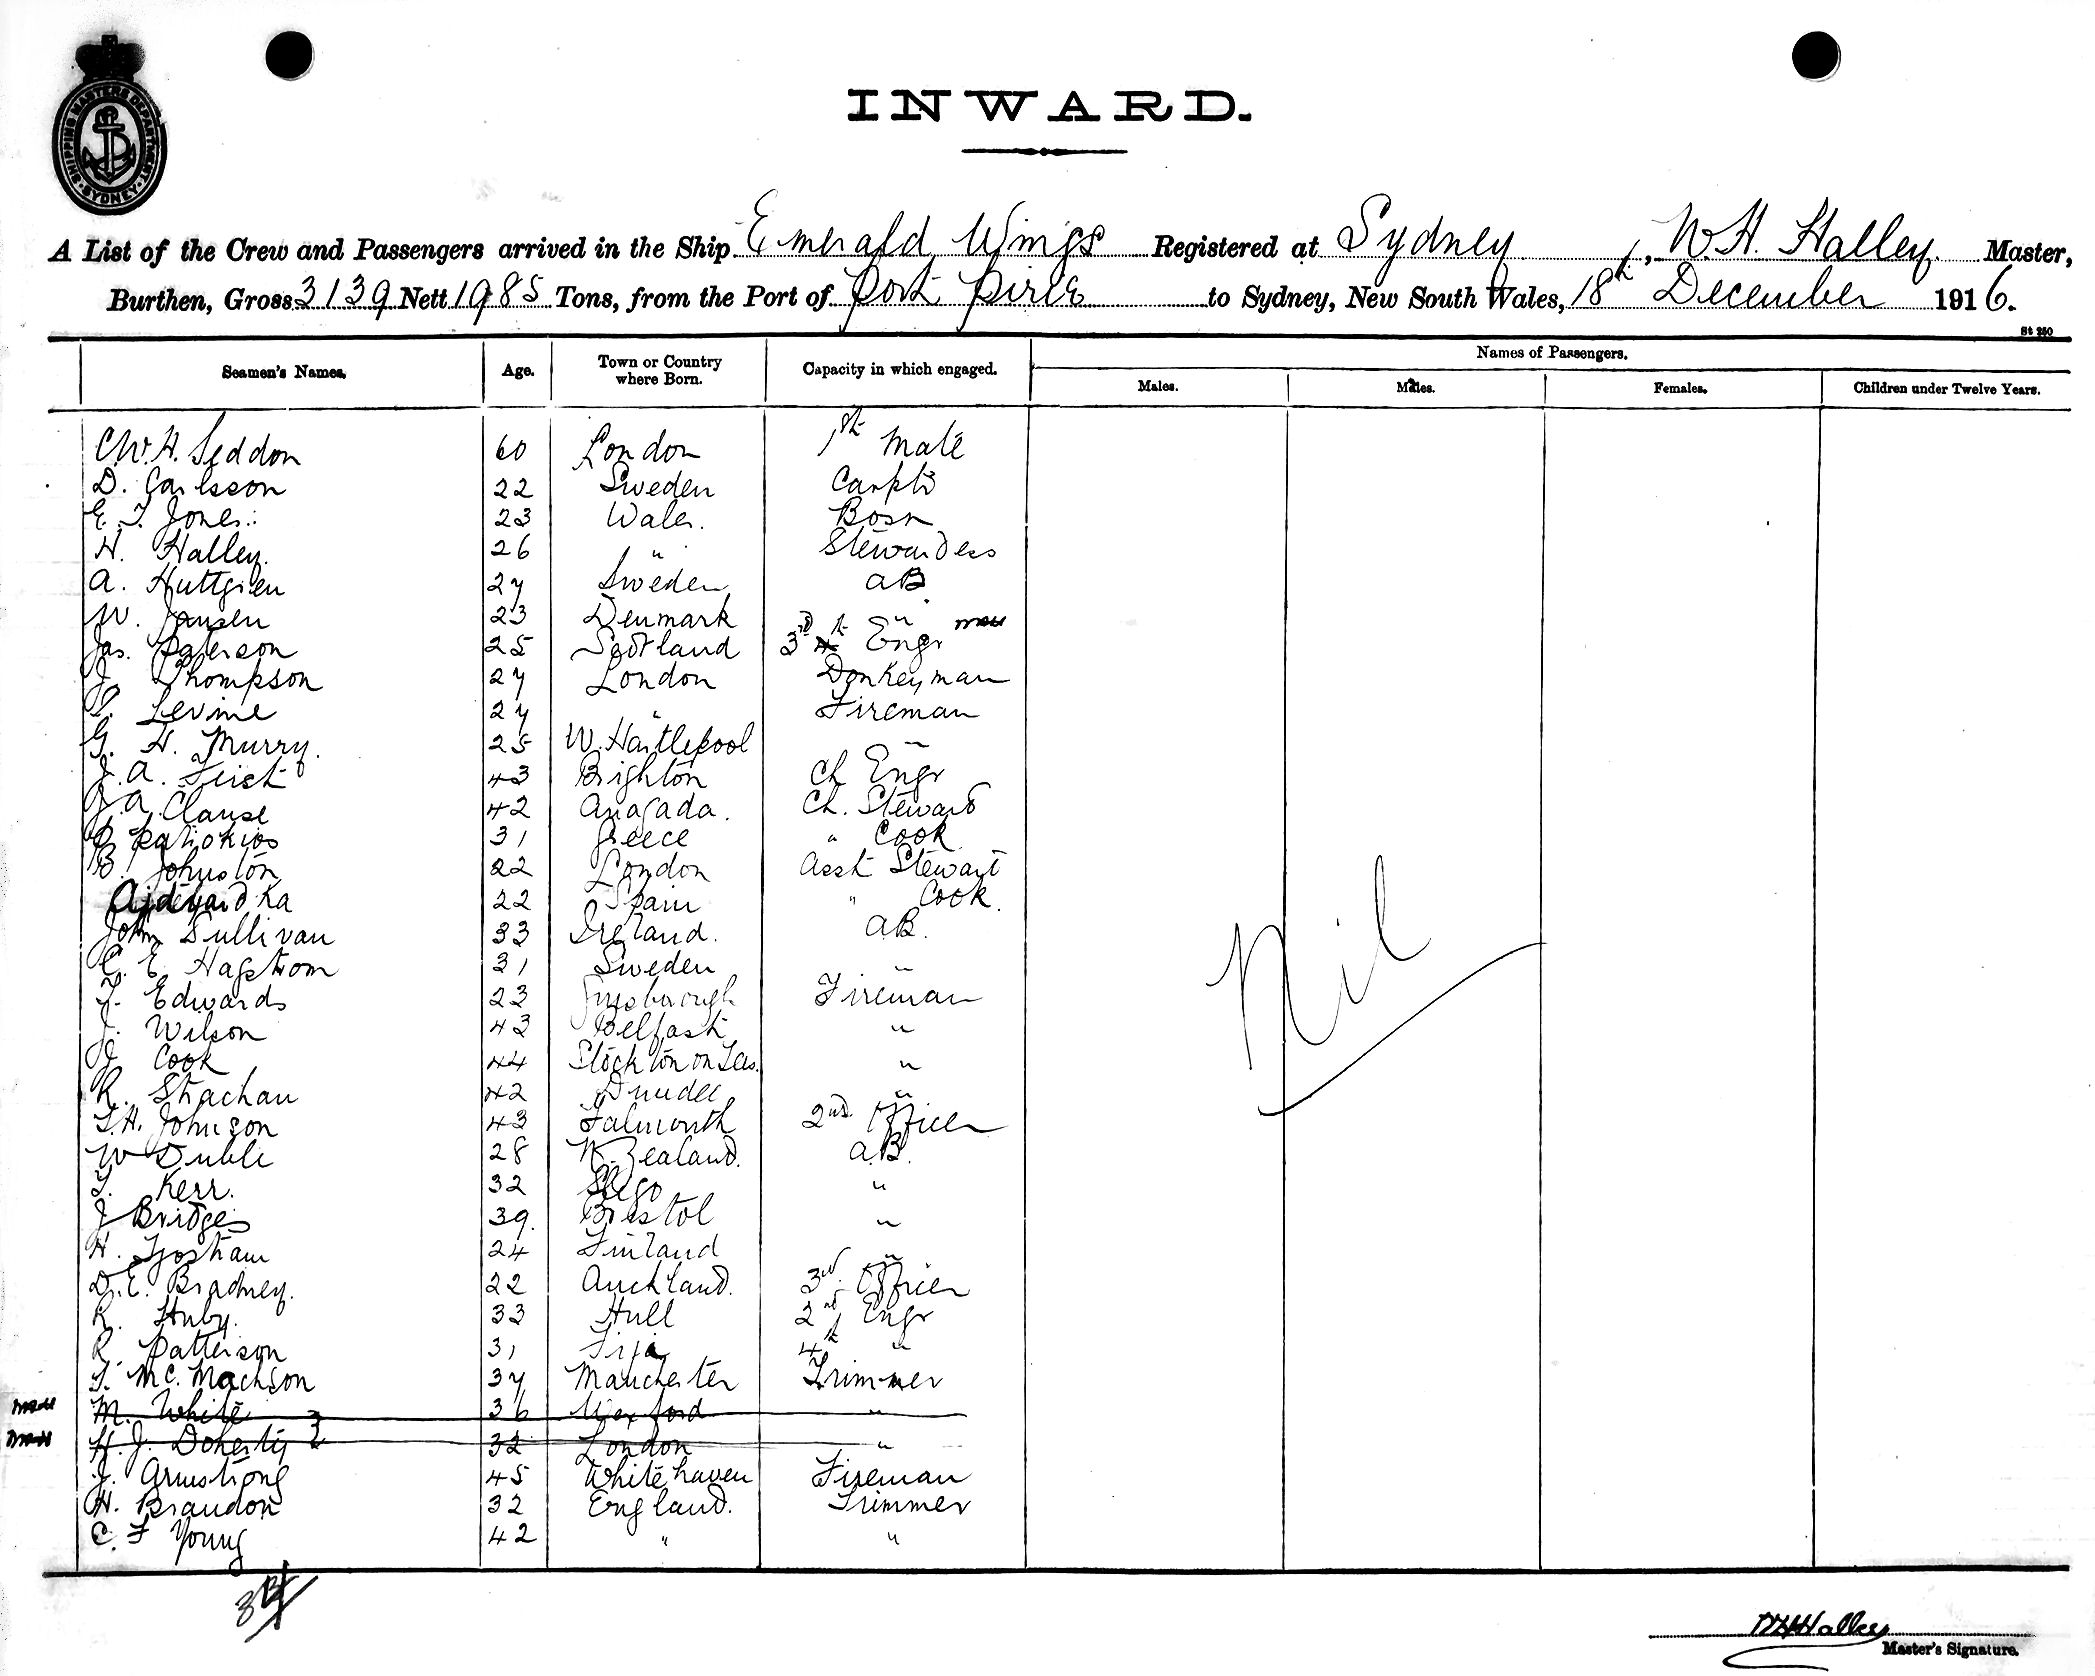 SHIPPING MASTERS DEPARTMENT
SYDNEY
INWARD.
A List of the Crew and Passengers arrived in the Ship Emerald Wings Registered at Sydney, W. H. Halley Master,
Burthen, Gross 3139 Nett 1985 Tons, from the Port of Port Pirie to Sydney, New South Wales, 18th December 1916.
St 250
Names of Passengers.
Seamen's Names. Age. Town or Country where Born. Capacity in which engaged. Males. Males. Females. Children under Twelve Years.
C.W.H. Seddon 60 London 1st Mate
D. Carlsson 22 Sweden Carptr
E. T. Jones 23 Wales. Bosn
H. Halley. 26 " Stewardess
A. Huttgren 27 Sweden AB
W. Jansen 23 Denmark "
Jas. Paterson 25 Scotland 3rd Engr
J. Thompson 27 London Donkeyman
Levine 27 " Fireman
G. H. Murry. 25 W. Hartlepool "
J. A. 43 Brighton Ch Engr
J. A. Clause 42 Anagada. Ch. Steward
31 Greece " Cook
B. Johnston 22 London Asst Stewart
22 Spain " Cook.
John Sullivan 33 Ireland. AB.
C. E. Hagstrom 31 Sweden "
Edwards 23 Fireman
J. Wilson 43 Belfast "
J. Cook 44 Stockton on Tees. "
R. Strachan 42 Dundee "
T.H. Johnson 43 Falmouth 2nd Officer
W 28 N. Zealand. A.B.
T. Kerr. 32 Sligo "
J Bridges 39. Bristol "
H. 24 Finland "
D. E. Bradney. 22 Auckland. 3rd Officer
R. Huby. 33 Hull 2nd Engr
R. Patterson 31 4th "
T. Mc. Machson 37 Manchester Trimmer
M. White 36 Wexford "
H. J. Doherty 32 London "
J. Armstrong 45 Whitehaven Fireman
H. Brandon 32 England. Trimmer
C. F Young 42 " "
Nil
WHHalley
Master's Signature.